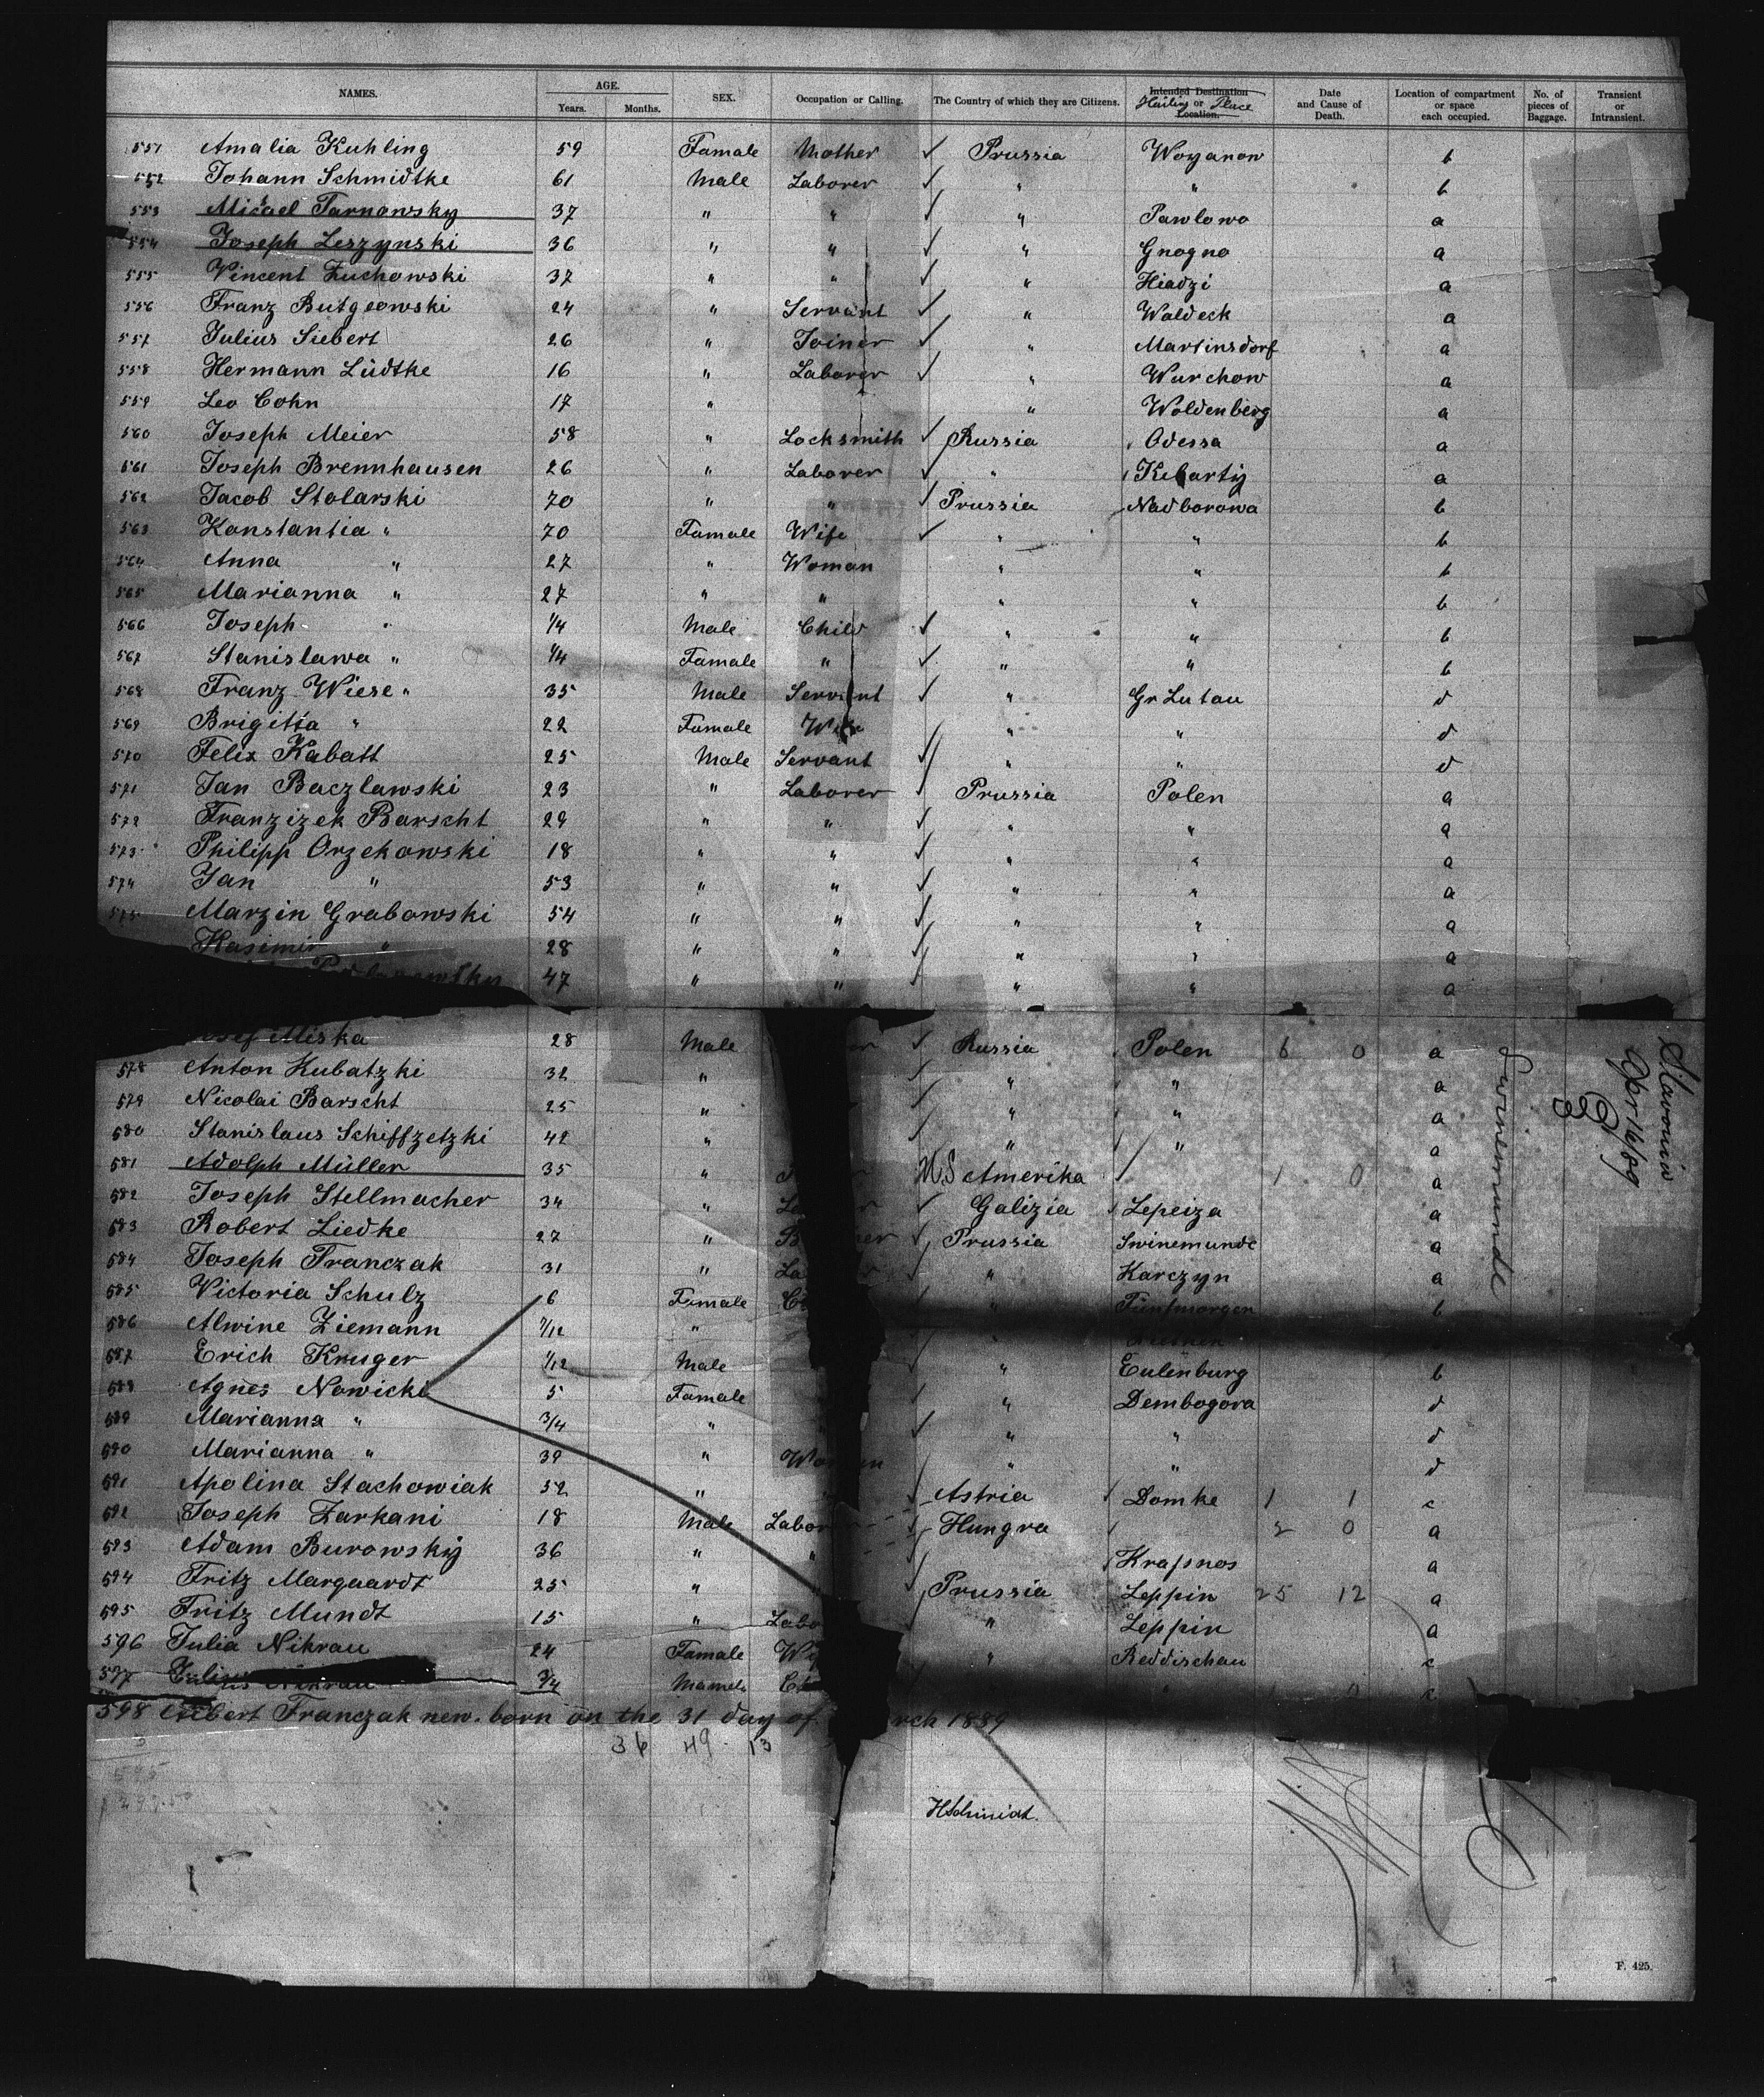 NAMES. AGE. Years. Months. SEX. Occupation or Calling. The Country of which they are Citizens. Intended Destination or Location. Hailing Place Date and Cause of Death. Location of compartment or space each occupied. No. of pieces of Baggage. Transient or Intransient.
551 Amalia Kuhling 59 Famale Mother ✓ Prussia Woyanow b
552 Johann Schmidtke 61 Male Laborer ✓ " " b
553 Micael Tarnowsky 37 " " ✓ " Pawlowo a
554 Joseph Leszynski 36 " " ✓ " Gnogno a
555 Vincent Zuchowski 37 " " ✓ " Hiadzi a
556 Franz Butgeowski 24 " Servant ✓ " Waldeck a
557 Julius Siebert 26 " Joiner ✓ " Martinsdorf a
558 Hermann Lüdtke 16 " Laborer ✓ " Wurchow a
559 Leo Cohn 17 " " Woldenberg a
560 Joseph Meier 58 " Locksmith ✓ Russia Odessa a
561 Joseph Brennhausen 26 " Laborer ✓ " Kibarty a
562 Jacob Stolarski 70 " " ✓ Prussia Nadborowa b
563 Konstantia " 70 Famale Wife ✓ " " b
564 Anna " 27 " Woman " " b
565 Marianna " 27 " " " " b
566 Joseph " 1/4 Male Child ✓ " " b
567 Stanislawa " 1/4 Famale " ✓ " " b
568 Franz Wiese " 35 Male Servant ✓ " Gr Lutau d
569 Brigitta " 22 Famale Wife ✓ " " d
570 Felix Kabatt 25 Male Servant ✓ " " d
571 Jan Baczlawski 23 " Laborer ✓ Prussia Polen a
572 Franzizek Barscht 29 " " ✓ " " a
573 Philipp Orzekowski 18 " " ✓ " " a
574 Jan " 53 " " ✓ " " a
575 Marzin Grabowski 54 " " ✓ " " a
Kasimir " 28 " " ✓ " " a
47 " " ✓ " " a
Miska 28 Male ✓ Russia Polen 6 0 a
578 Anton Kubatzki 32 " ✓ " " a
579 Nicolai Barscht 25 " ✓ " " a
580 Stanislaus Schiffzetzki 42 " ✓ " " a
581 Adolph Müller 35 " U.S Amerika 1 0 a
582 Joseph Stellmacher 34 " ✓ Galizia Lepeiza a
583 Robert Liedke 27 " ✓ Prussia Swinemunde a
584 Joseph Franczak 31 " ✓ " Karczyn a
585 Victoria Schulz 6 Famale ✓ " Fünfmorgen b
586 Alwine Ziemann 7/12 " ✓ "
587 Erich Kruger 1/12 Male ✓ " Eulenburg b
588 Agnes Nowicki 5 Famale ✓ " Dembogora d
589 Marianna " 3/4 " ✓ " " d
590 Marianna " 39 " Woman " " d
591 Apolina Stachowiak 52 " ✓ Astria Domke 1 1 c
592 Joseph Zarkani 18 Male Laborer ✓ Hungra 2 0 a
593 Adam Burowsky 36 " " ✓ Krapnos a
594 Fritz Marquardt 25 " ✓ Prussia Leppin 25 12 a
595 Fritz Mundt 15 " ✓ " Leppin a
596 Julia Nikrau 24 Famale " Reddischau c
597 Nikrau 3/4 Mamele
598 Albert Franczak new. born on the 31 day of March 1889
36 49 13
595
HSchmidt.
Swinemunde
Slavonia
Apr 16/89
3
F. 425.